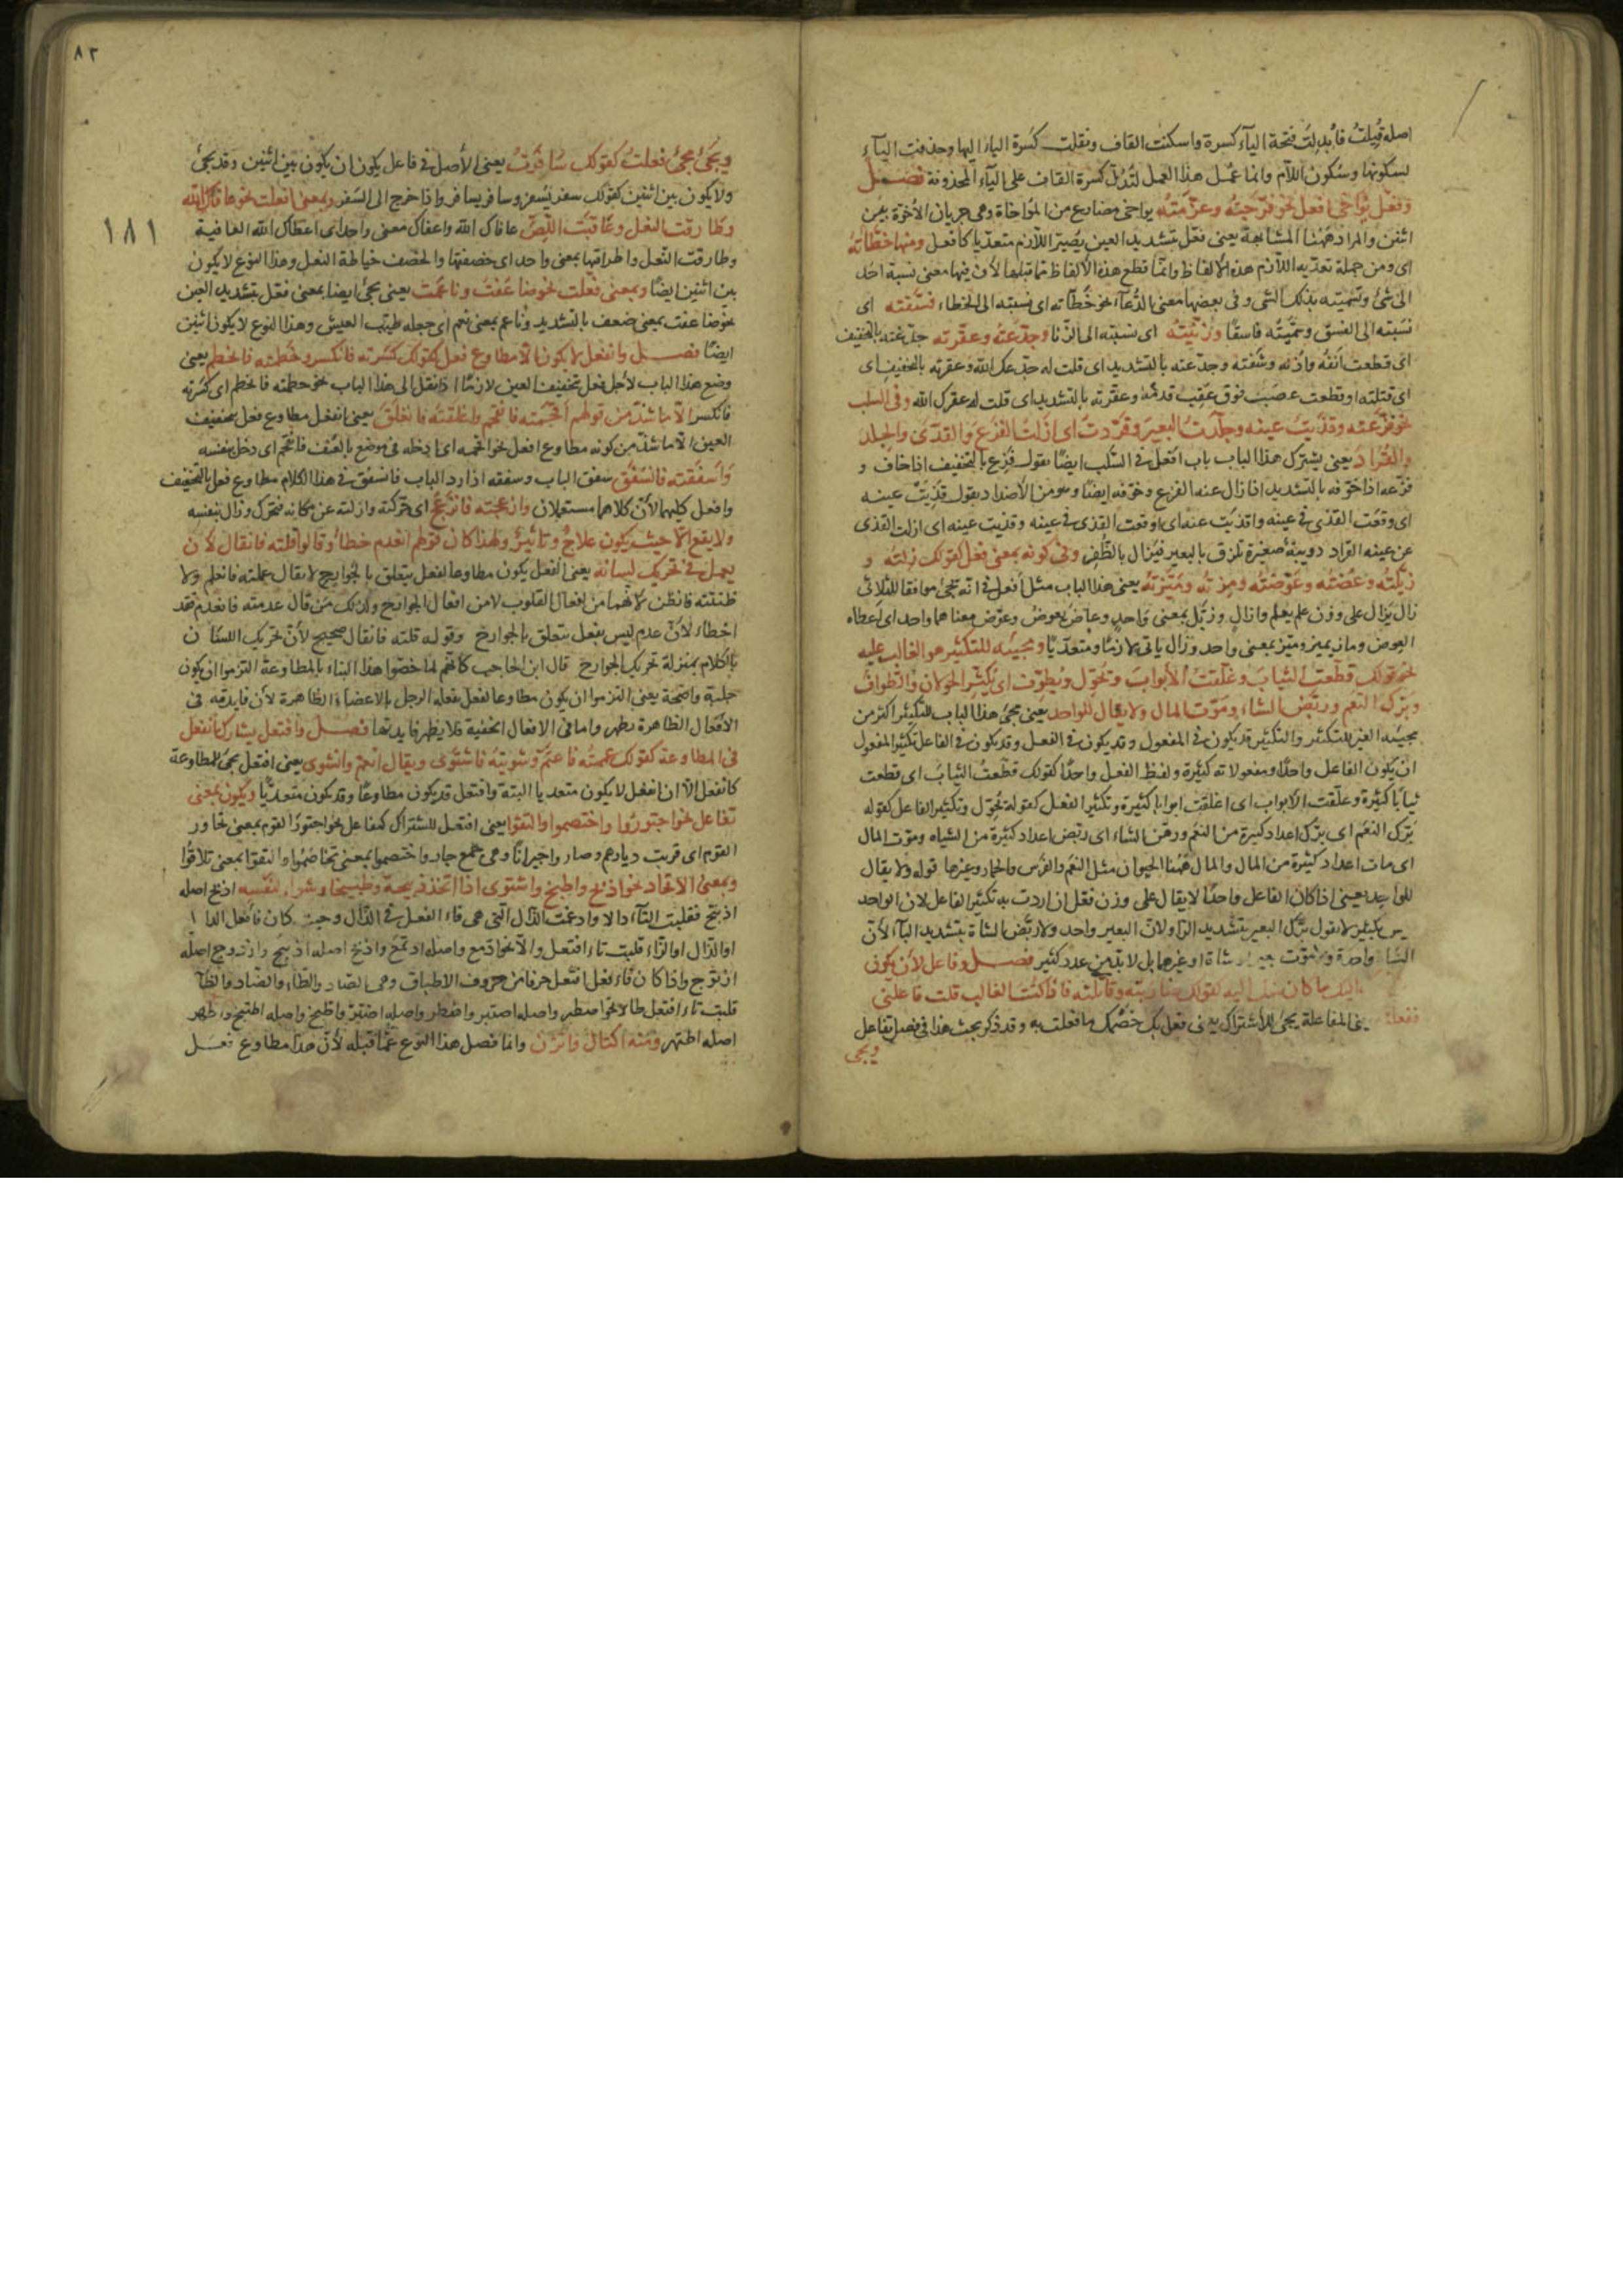 اصله قيلت فابدلت فتحة الياء كسرة واسكنت القاف ونقلت كسرة الياء اليها وحذفت الياء
لسكونها وسكون اللام وانما عمل هذا العمل لتدل كسرة القاف على الياء المحذوفة فصل
وفعل يواخي افعل نحو فرحته وغرمته يواخي مضارع من المواخاة وهي جريان الاخوة بين
اثنين والمراد ههنا المشابهة يعني فعل بتشديد العين يصير اللازم متعديا كافعل ومنها خطأته
اى ومن جملة تعديه اللازم هذه الالفاظ وانما قطع هذه الالفاظ مما قبلها لان فيها معنى نسبة احد
الى شئ وتسميته بذلك الشئ وفي بعضها معنى الدعاء نحو خطأته اى نسبته الى الخطاء فسقته اى
نسبته الى الفسق وسميته فاسقا وزنيته اى نسبته الى الزنا وجدعته وعقرته جدعته بالتخفيف
اى قطعت انفه واذنه وشفته وجدعته بالتشديد اى قلت له جدعك الله وعقرته بالتخفيف اى
اى قتلته او قطعت عصب فوق عقب قدمه وعقرته بالتشديد اى قلت له عقرك الله وفي السلب
نحو فزعته وقذيت عينه وجلدت البعير وقردت اى ازلت الفزع والقذى والجلد
والقراد يعني يشترك هذا الباب باب افعل في السلب ايضا يقول فزع بالتخفيف اذا خاف و
فزعه اذا خوفه بالتشديد اذا زال عنه الفزع وخوفه ايضا وهو من الاضداد يقول قذيت عينه
اى وقعت القذى في عينه واقذيت عنه اى اوقعت القذى في عينه وقذيت عينه اى ازلت القذى
عن عينه القراد دويبة صغيرة تلزق بالبعير فيزال بالظفر وفي كونه بمعنى فعل كقولك زلته و
زيلته وعضته وعوضته ومزته وميزته يعني هذا الباب مثل افعل في انه يجئ موافقا للثلاثي
زال يزال على وزن علم يعلم وازال وزيل بمعنى واحد وعاض يعوض وعوض معناهما واحد اى اعطاه
العوض وماز يميز وميز بمعنى واحد وزال ياتي لازما ومتعديا ومجيئه للتكثير هو الغالب عليه
نحو قولك قطعت الثياب وغلقت الابواب وتجول ويطوف اى يكثر الجولان والطواف
وبرك النعم وربض الشاء وموت المال ولا يقال للواحد يعني مجئ هذا الباب للتكثير اكثر من
مجيئه لغير للتكثير والتكثير قد يكون في المفعول وقد يكون في الفعل وقد يكون في الفاعل تكثير المفعول
ان يكون الفاعل واحدا ومفعولاته كثيرة ولفظ الفعل واحدا كقولك قطعت الثياب اى قطعت
ثيابا كثيرة وغلقت الابواب اى اغلقت ابوابا كثيرة وتكثير الفعل كقوله تجول وتكثير الفاعل كقوله
برك النعم اى برك اعداد كثيرة من النعم وربض الشاء اى ربض اعداد كثيرة من الشياه وموت المال
اى مات اعداد كثيرة من المال والمال ههنا الحيوان مثل النعم والفرس والحمار وغيرها قوله ولا يقال
للواحد يعني اذا كان الفاعل واحدا لا يقال على وزن فعل ان اردت به تكثير الفاعل لان الواحد
ليس بكثير لا يقول برك البعير بتشديد الراء لان البعير واحد ولا ربض الشاة بتشديد الباء لان
الشاة واحدة ولا موت بعير شاة او غيرها بل لا بد من عدد كثير فصل وفاعل لان يكون
اليك ما كان منك اليه كقولك ضاربته وقاتلته فاذا كنت الغالب قلت فاعلني
ففعلته يعني المفاعلة يجئ للاشتراك يعني فعل بك خصمك ما فعلت به وقد ذكر بحث هذا في فصل تفاعل
ويجى
٨٢
ويجئ مجئ فعلت كقولك سافرت يعني الاصل في فاعل يكون ان يكون بين اثنين وقد يجئ
ولا يكون بين اثنين كقولك سفر يسفر وسافر يسافر واذا خرج الى السفر وبمعنى افعلت نحو عافاك الله
وطارقت النعل وعاقبت اللص عافاك الله واعفاك معنى واحد اى اعطاك الله العافية
١٨١
وطارقت النعل واطرقتها بمعنى واحد اى خصفتها والخصف خياطة النعل وهذا النوع لا يكون
بين اثنين ايضا وبمعنى فعلت نحو ضاعفت وناعمت يعني يجئ ايضا بمعنى فعل بتشديد العين
نحو ضاعفت بمعنى ضعف بالتشديد وناعم بمعنى نعم اى جعله طيب العيش وهذا النوع لا يكون اثنين
ايضا فصل وانفعل لا يكون الا مطاوع فعل كقولك كسرته فانكسر وحطمته فانحطم يعني
وضع هذا الباب لاجل فعل بتخفيف العين لازما اذا نقل الى هذا الباب نحو حطمته فانحطم اى كسرته
فانكسر الا ما شذ من قولهم اقحمته فانقحم واغلقته فانغلق يعني انفعل مطاوع فعل بتخفيف
العين الا ما شذ من كونه مطاوع افعل نحو اقحمه اى ادخله في موضع بالعنف فانقحم اى دخل بنفسه
واسفقته فانسفق سفق الباب وسفقه اذا رد الباب فانسفق في هذا الكلام مطاوع فعل بالتخفيف
وافعل كليهما لان كلاهما مستعملان وازعجته فانزعج اى حركته وازلته عن مكانه فتحرك وزال بنفسه
ولا يقع الا حيث يكون علاج وتاثير ولهذا كان قولهم انعدم خطأ وقالوا قلته فانقال لان
يعمل في تحريك لسانه يعني انفعل يكون مطاوعا لفعل يتعلق بالجوارح لا يقال علمته فانعلم ولا
ظننته فانظن لانهما من افعال القلوب لا من افعال الجوارح ولذلك من قال عدمته فانعدم فقد
اخطاء لان عدم ليس بفعل يتعلق بالجوارح وقوله قلته فانقال صحيح لان تحريك اللسان
بالكلام بمنزلة تحريك الجوارح قال ابن الحاجب كانهم لما خصوا هذا البناء بالمطاوعة التزموا ان يكون
جلية واضحة يعني التزموا ان يكون مطاوعا لفعل يفعله الرجل بالاعضاء الظاهرة لان فايدته في
الافعال الظاهرة يظهر واما في الافعال الخفية فلا يظهر فايدتها فصل وافتعل يشارك انفعل
في المطاوعة كقولك غممته فاغتم وشويته فاشتوى ويقال انغم وانشوى يعني افتعل يجئ للمطاوعة
كانفعل الا ان انفعل لا يكون متعديا البتة وافتعل قد يكون مطاوعا وقد يكون متعديا ويكون بمعنى
تفاعل نحو اجتوروا واختصموا والتقوا يعني افتعل للشتراك كتفاعل نحو اجتور القوم بمعنى تجاور
القوم اى قربت ديارهم وصاروا جيرانا وهي جمع جار واختصموا بمعنى تخاصموا والتقوا بمعنى تلاقوا
وبمعنى الاتخاذ نحو اذبح واطبخ واشتوى اذا اتخذ ذبيحة وطبيخا وشواء لنفسه اذبح اصله
اذتبح فقلبت التاء دالا وادغمت الذال التي هي فاء الفعل في الدال وحيث كان فاء فعل الدا
او الذال او الزاء قلبت تاء افتعل دالا نحو ادمع واصله ادتمع واذبح اصله اذتبح وازدوج اصله
ازتوج واذا كان فاء فعل افتعل حرفا من حروف الاطباق وهي الصاد والطاء والضاد والظاء
قلبت تاء افتعل طاء نحو اصطبر واصله اصتبر واضطر واصله اضترر واطبخ واصله اطتبخ واظهر
اصله اظتهر ومنه اكتال واتزن وانما فصل هذا النوع عما قبله لان هذا مطاوع فعل